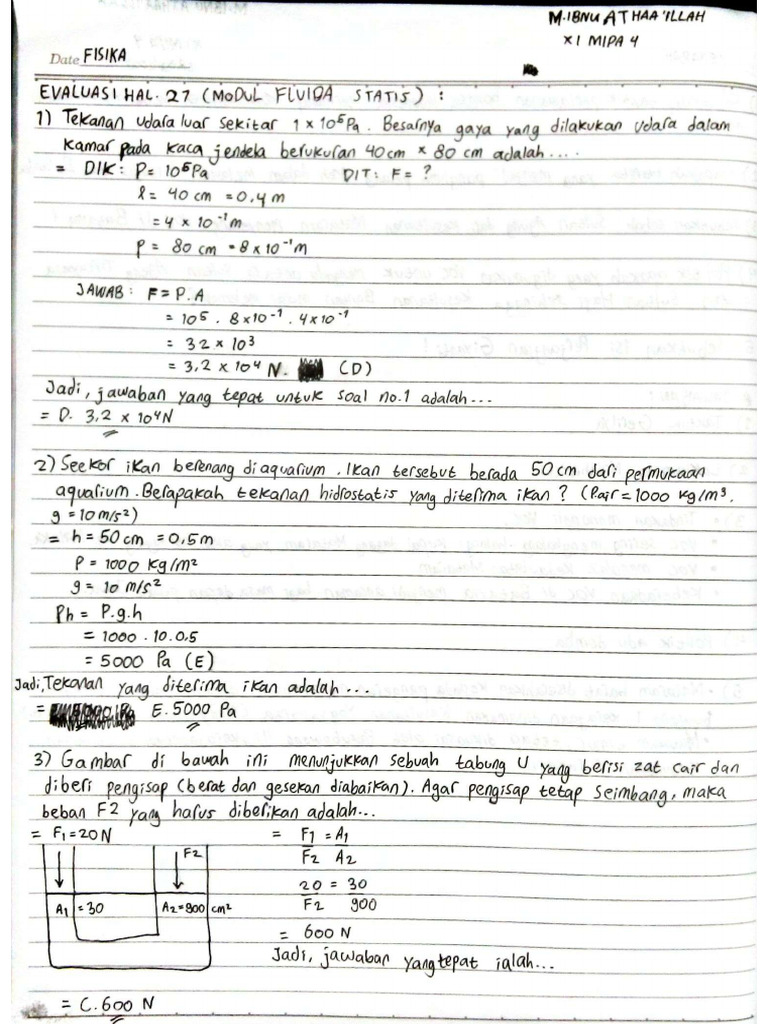 M.IBNU ATHAA'ILLAH
XI MIPA 4
Date FISIKA
EVALUASI HAL. 27 (MODUL FLUIDA STATIS) :
1) Tekanan udara luar sekitar 1 x 10⁵ Pa. Besarnya gaya yang dilakukan udara dalam
kamar pada kaca jendela berukuran 40 cm x 80 cm adalah....
= DIK : P = 10⁵ Pa DIT : F = ?
l = 40 cm = 0,4 m
= 4 x 10⁻¹ m
P = 80 cm = 8 x 10⁻¹ m
JAWAB : F = P.A
= 10⁵ . 8x10⁻¹ . 4x10⁻¹
= 32 x 10³
= 3,2 x 10⁴ N. (D)
Jadi, jawaban yang tepat untuk soal no.1 adalah...
= D. 3,2 x 10⁴ N
2) Seekor ikan berenang di aquarium. Ikan tersebut berada 50 cm dari permukaan
aquarium. Berapakah tekanan hidrostatis yang diterima ikan ? (Pair = 1000 kg/m³,
g = 10 m/s²)
= h = 50 cm = 0,5 m
P = 1000 kg/m²
g = 10 m/s²
Ph = P.g.h
= 1000 . 10 . 0,5
= 5000 Pa (E)
Jadi, Tekanan yang diterima ikan adalah ...
= E. 5000 Pa
3) Gambar di bawah ini menunjukkan sebuah tabung U yang berisi zat cair dan
diberi pengisap (berat dan gesekan diabaikan). Agar pengisap tetap seimbang, maka
beban F2 yang harus diberikan adalah...
= F1 = 20 N
F2
A1 = 30 A2 = 900 cm²
= F1 = A1
F2 A2
20 = 30
F2 900
= 600 N
Jadi, jawaban yang tepat ialah...
= C. 600 N